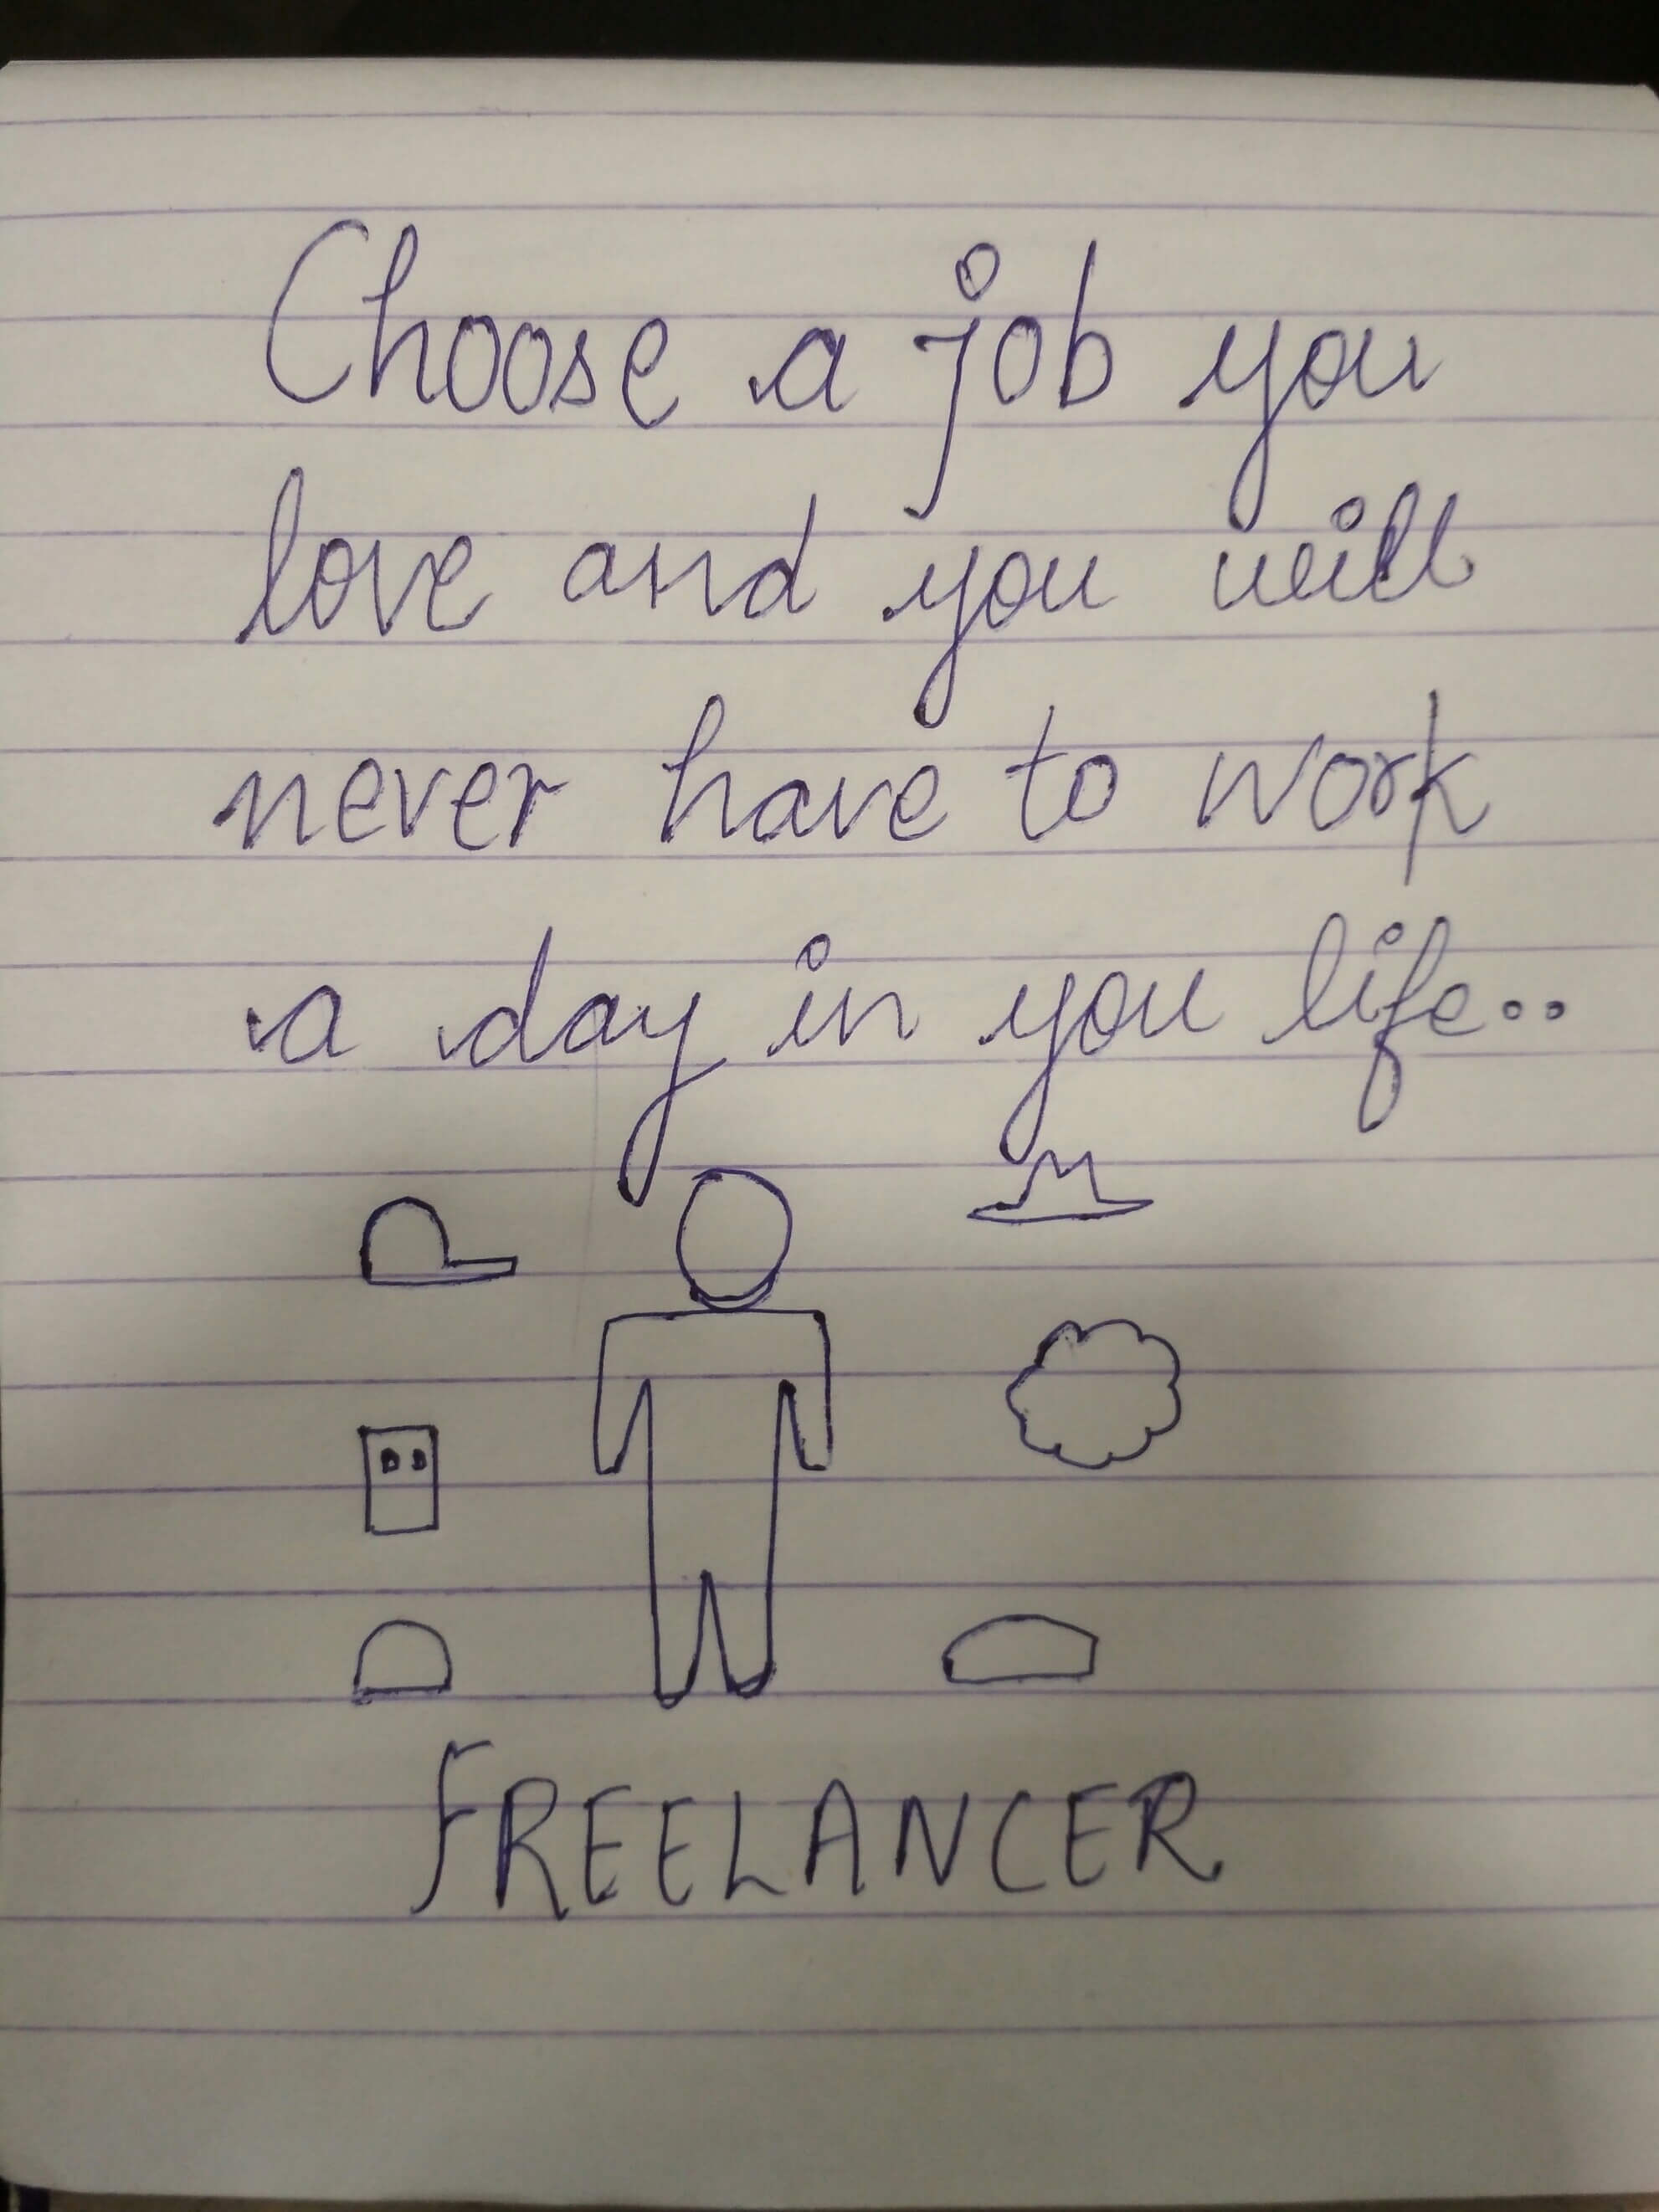 Choose a job you
love and you will
never have to work
a day in you life..
FREELANCER